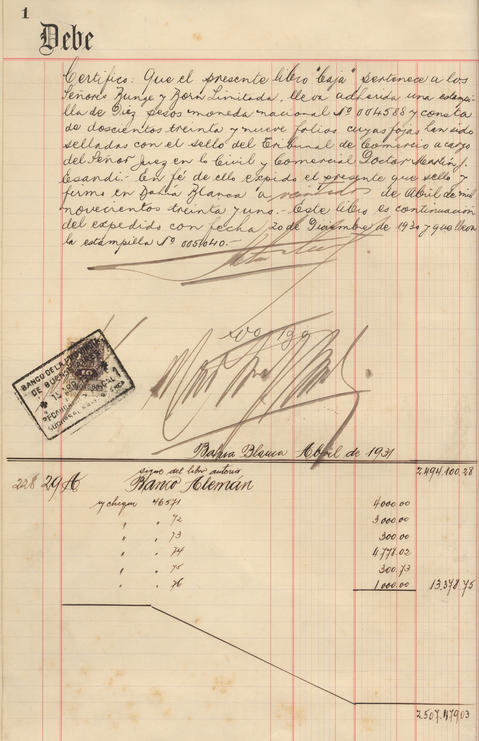 1
Debe
Certifico: Que el presente libro "Caja" pertenece a los
Señores Bunge y Born Limitada, lleva adherida una estampi-
lla de Diez pesos moneda nacional Nº 004588 y consta
de doscientos treinta y nueve folios cuyas fojas han sido
selladas con el sello del Tribunal de Comercio a cargo
del Señor Juez en lo Civil y Comercial Doctor Martín J.
Esandi.- En fé de ello expido el presente que sello y
firmo en Bahía Blanca a veintidos de Abril de mil
novecientos treinta y uno.- Este libro es continuación
del expedido con fecha 20 de Diciembre de 1930 y que lleva
la estampilla Nº 0051640.-
BANCO DE LA PROVINCIA
DE BUENOS AIRES
Bahia Blanca Abril de 1931
sigue del libro anterior 2.494.100.28
228 29 A Banco Alemán
n/ cheque 46571 4000.00
" " 72 3000.00
" " 73 300.00
" " 74 4.778.02
" " 75 300.73
" " 76 1000.00 13.378.75
2.507.479.03